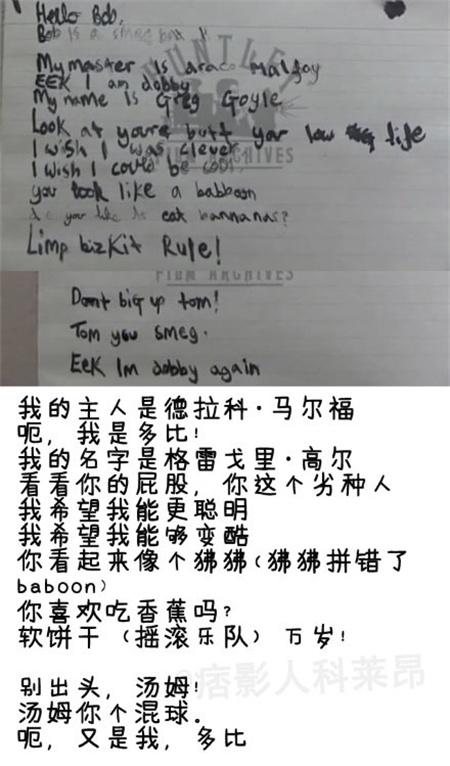 Hello Bob,
Bob is a smeg
My master is araco Malfoy
EEK I am dobby
My name is Greg Goyle
Look at youre butt you low life
I wish I was clever
I wish I could be cool
you look like a babboon
do you like to eat bannanas?
Limp bizkit Rule!
UNTLEY
FILM ARCHIVES
FILM ARCHIVES
Dont big up tom!
Tom you smeg.
EEK Im dobby again
我的主人是德拉科·马尔福
呃，我是多比！
我的名字是格雷戈里·高尔
看看你的屁股，你这个劣种人
我希望我能更聪明
我希望我能够变酷
你看起来像个狒狒（狒狒拼错了
baboon）
你喜欢吃香蕉吗？
软饼干（摇滚乐队）万岁！
别出头，汤姆！
汤姆你个混球．
呃，又是我，多比
@痞影人科莱昂